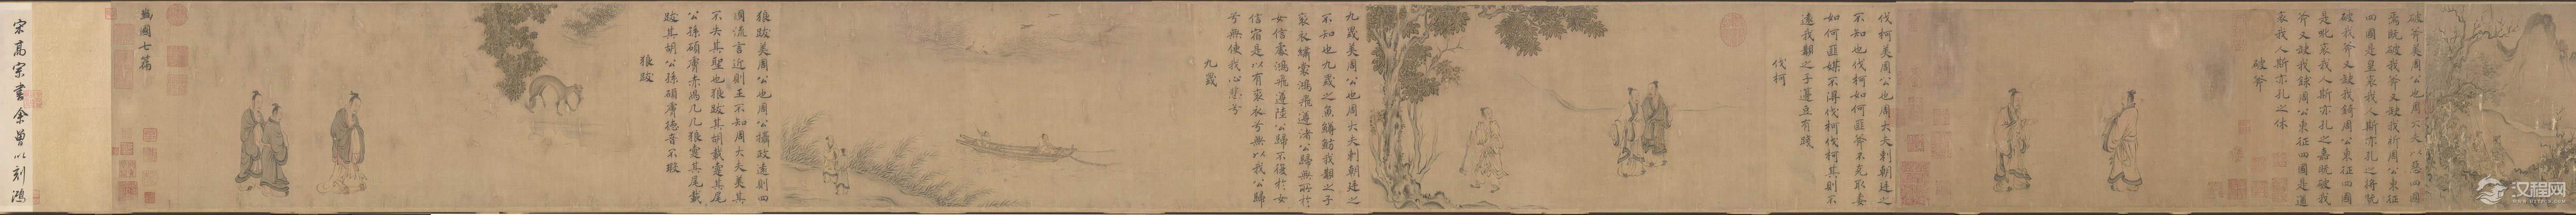 破斧美周公也周大夫以惡四國
焉既破我斧又缺我斨周公東征
四國是皇哀我人斯亦孔之將既
破我斧又缺我錡周公東征四國
是吪哀我人斯亦孔之嘉既破我
斧又缺我銶周公東征四國是遒
哀我人斯亦孔之休
破斧
伐柯美周公也周大夫刺朝廷之
不知也伐柯如何匪斧不克取妻
如何匪媒不得伐柯伐柯其則不
遠我覯之子籩豆有踐
伐柯
九罭美周公也周大夫刺朝廷之
不知也九罭之魚鱒魴我覯之子
袞衣繡裳鴻飛遵渚公歸無所於
女信處鴻飛遵陸公歸不復於女
信宿是以有袞衣兮無以我公歸
兮無使我心悲兮
九罭
狼跋美周公也周公攝政遠則四
國流言近則王不知周大夫美其
不失其聖也狼跋其胡載疐其尾
公孫碩膚赤舄几几狼疐其尾載
跋其胡公孫碩膚德音不瑕
狼跋
豳國七篇
宋高宗書余曾以刻鴻
汉程网